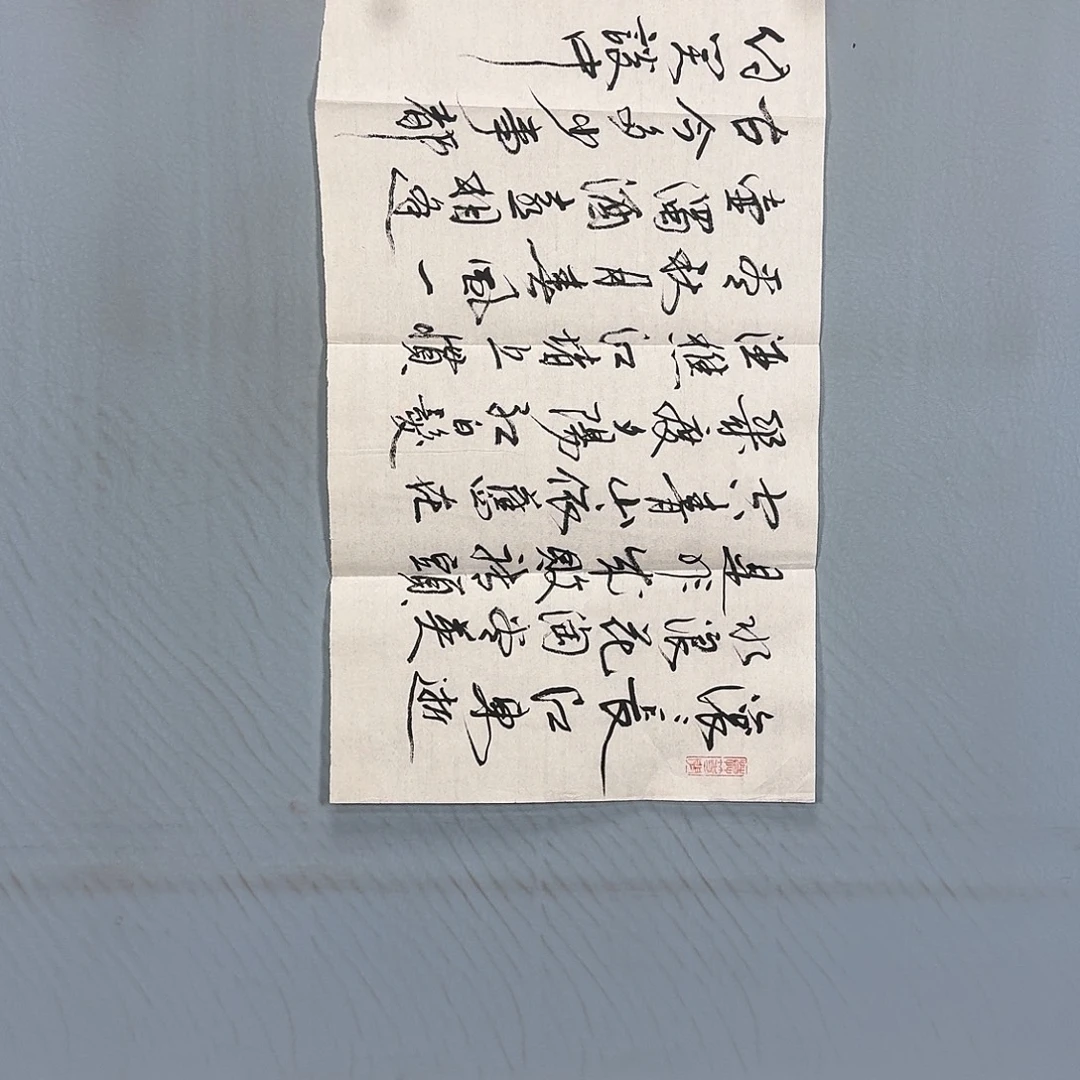 滾〻長江東逝
水浪花淘盡英
是非成敗轉頭
空青山依舊在
幾度夕陽紅白髮
漁樵江渚上慣
看秋月春風一
壺濁酒喜相逢
古今多少事都
付笑談中